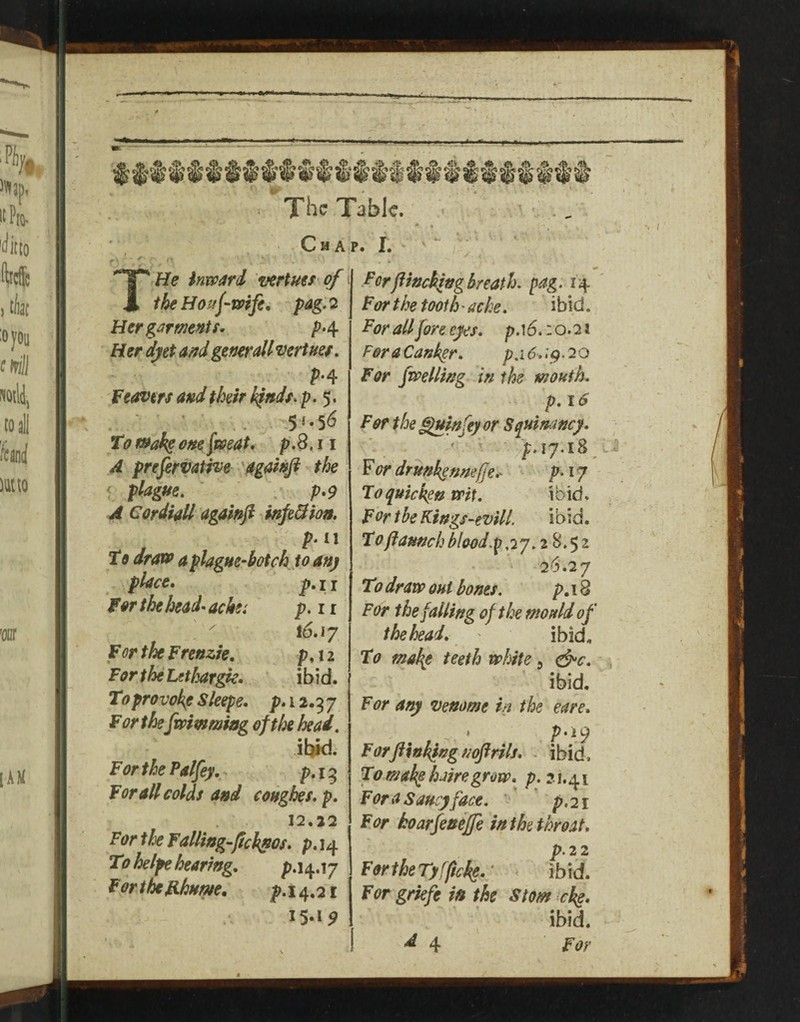 Phy
wap,
it Pro-
ditto
stresse
, that
to you
e will
world,
to all
re and
but to
our
I AM
The Table.
CHAP. I.
THe inward vertues of
the Houſ-wife. pag.2
Her garments. p.4
Her dyet and generall vertues.
p.4
Feavers and their kinds. p. 5.
51.56
To make one ſweat. p.8.11
A preſervative againſt the
plague. p.9
A Cordiall againſt infection.
p.11
To draw a plague-botch to any
place. p.11
For the head-ache: p.11
16.17
For the Frenzie. p.12
For the Lethargie. ibid.
To provoke Sleepe. p.12.37
For the ſwimming of the head.
ibid.
For the Palſey. p.13
For all colds and coughes. p.
12.22
For the Falling-ſickņos. p.14
To helpe hearing. p.14.17
For the Rhume. p.14.21
15.19
For ſtincking breath. pag. 14
For the tooth-ache. ibid.
For all ſore eyes. p.16.20.21
For a Canker. p.16.19.20
For ſwelling in the mouth.
p.16
For the Quinſey or Squinancy.
p.17.18
For drunkenneſſe. p.17
To quicken wit. ibid.
For the Kings-evill. ibid.
To ſtaunch blood.p.27.28.52
26.27
To draw out bones. p.18
For the falling of the mould of
the head. ibid.
To make teeth white, &c.
ibid.
For any venome in the eare.
p.19
For ſtinking noſtrils. ibid.
To make haire grow. p.21.41
For a Saucy face. p.21
For hoarſeneſſe in the throat.
p.22
For the Tyſſicke. ibid.
For griefe in the Stom cke.
ibid.
A 4 For